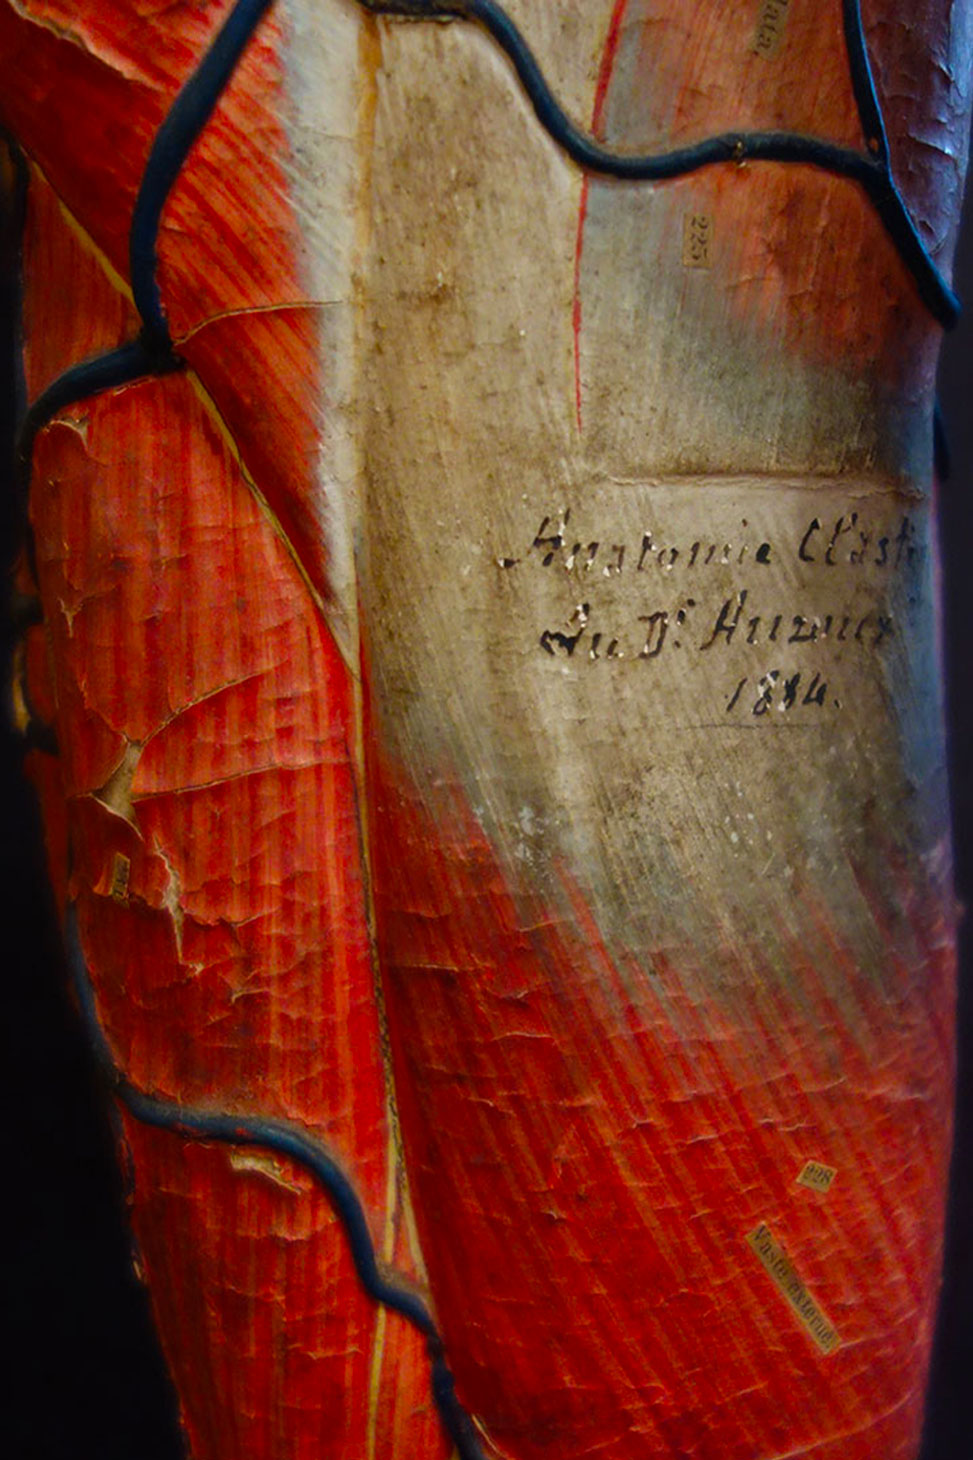 225
Anatomie Clasti
Du Dr Auzoux
1884.
228
Vaste externe